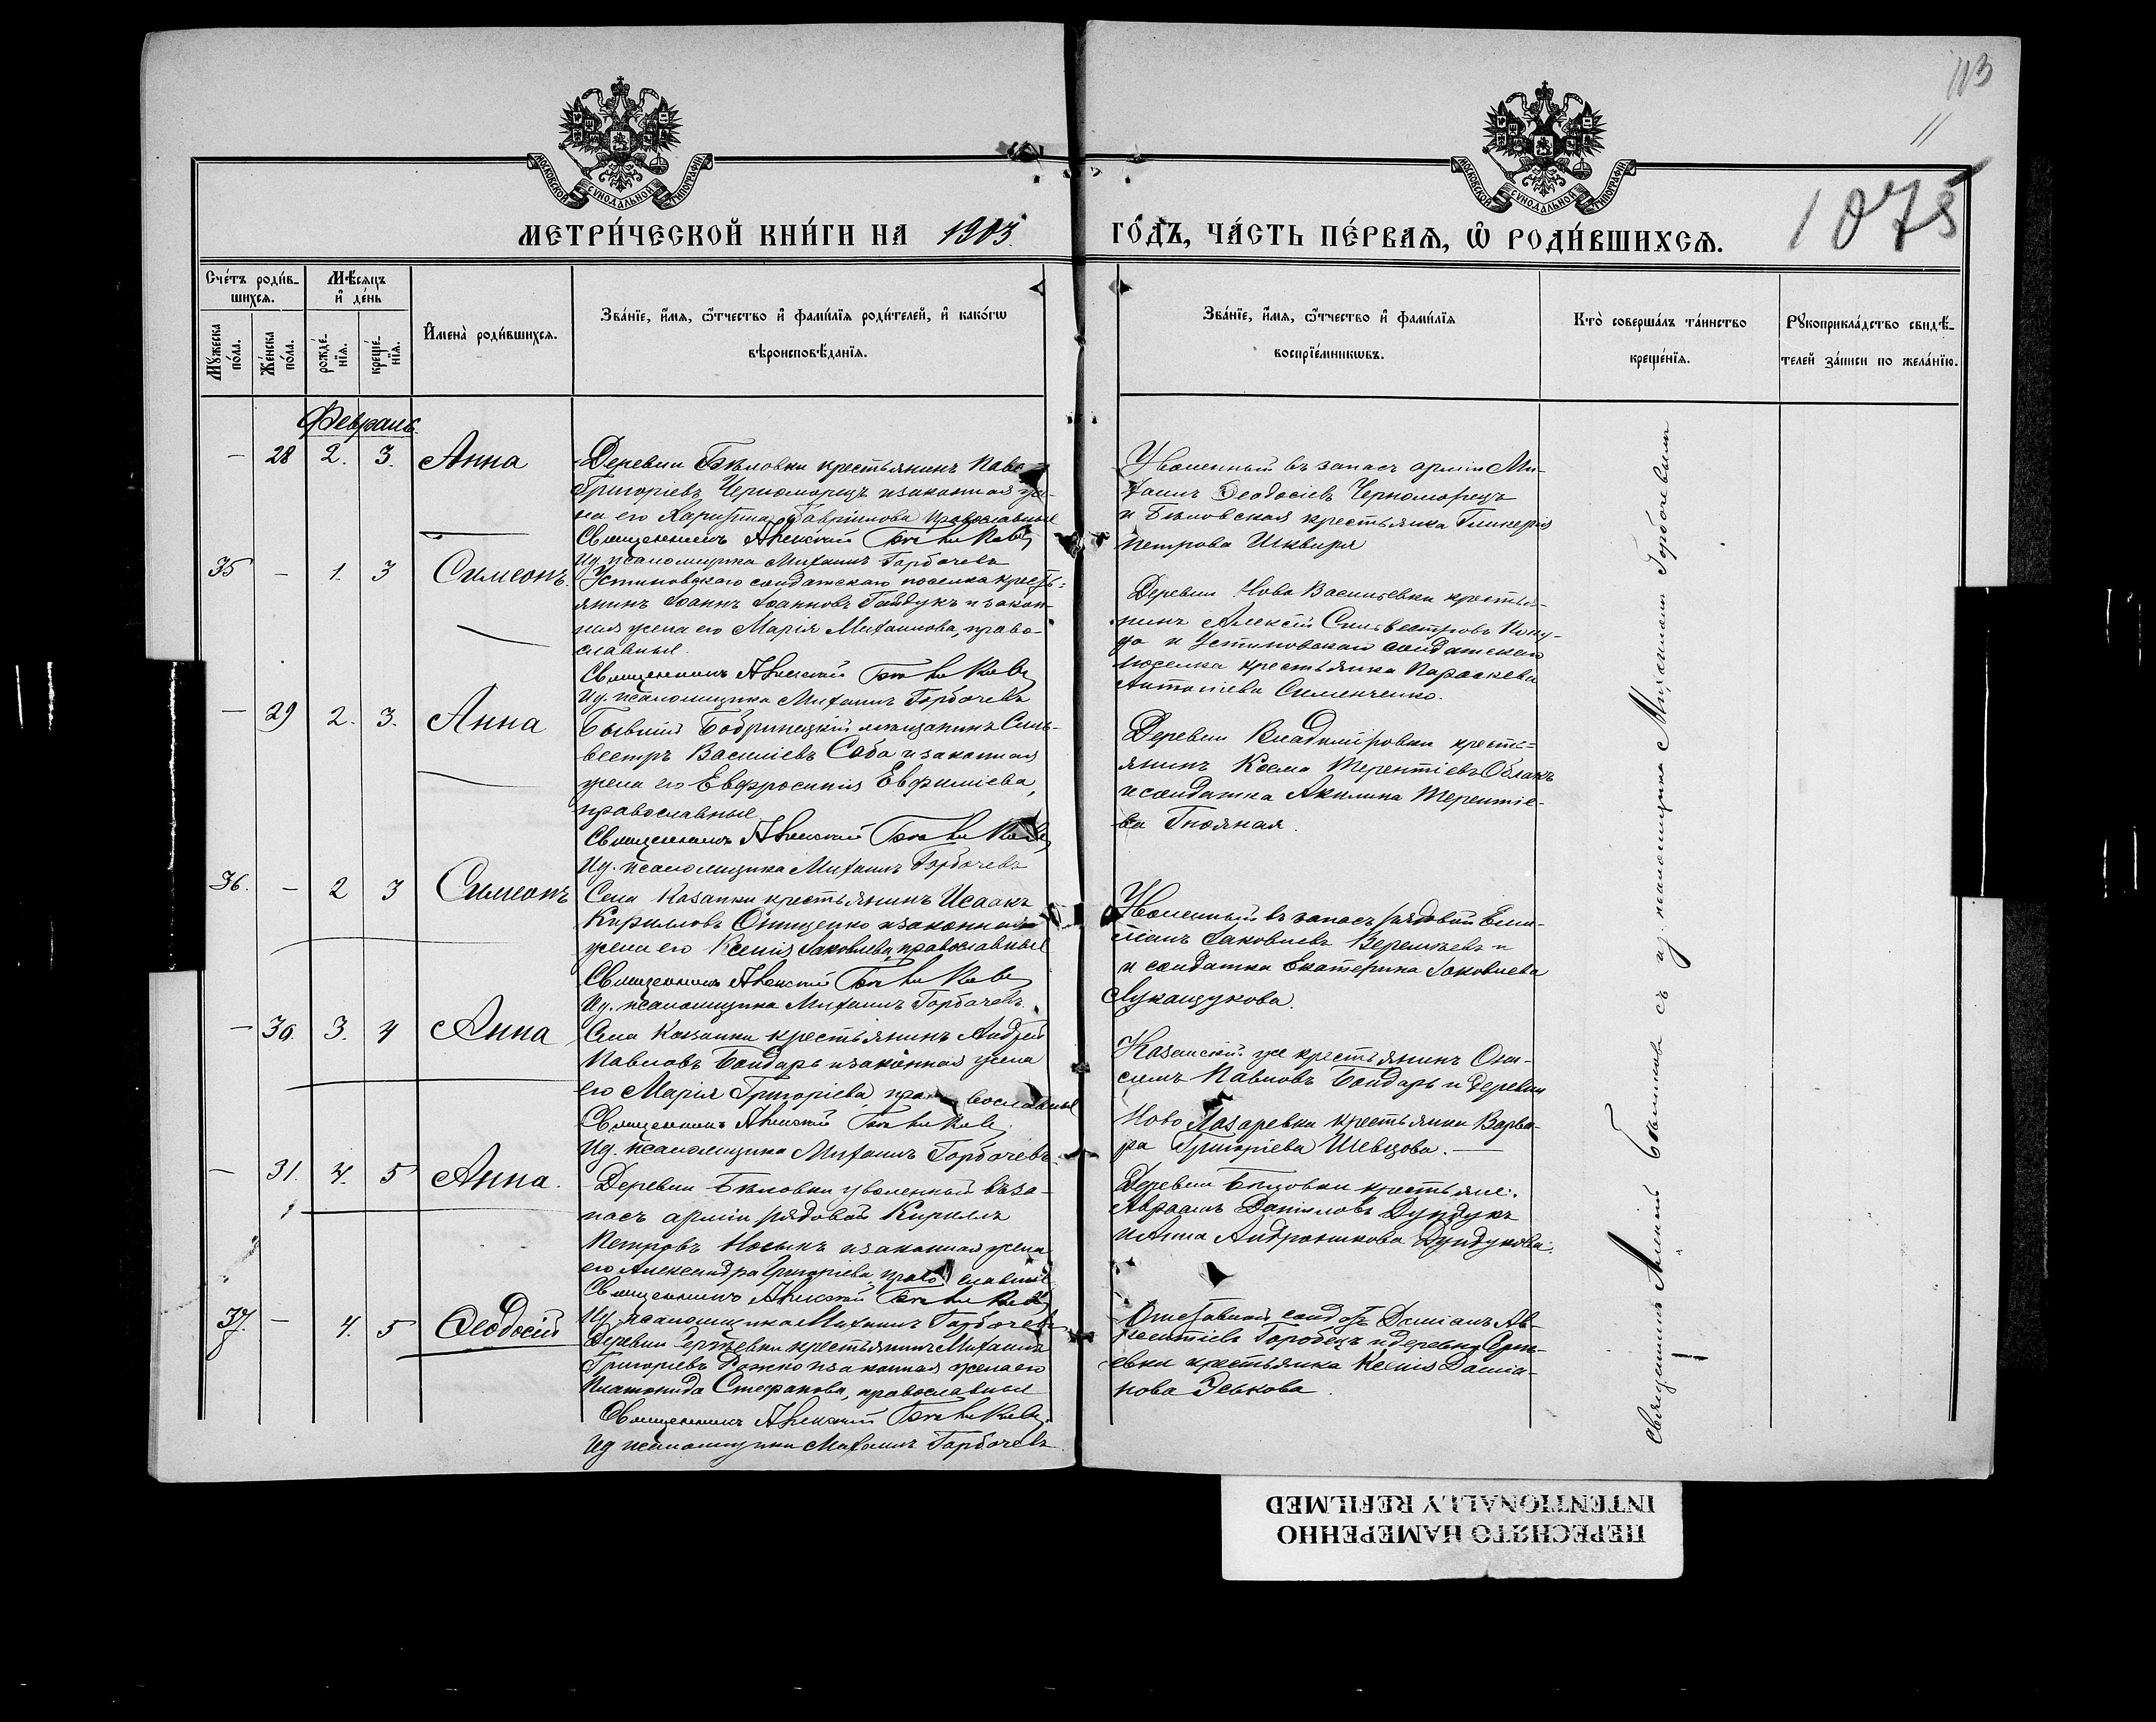 113
11
1075
МОСКОВСКОЙ СУНОДАЛЬНОЙ ТИПОГРАФІИ
МОСКОВСКОЙ СУНОДАЛЬНОЙ ТИПОГРАФІИ
МЕТРИ́ЧЕСКОЙ КНИ́ГИ НА 1903.
ГО́ДЪ, ЧА́СТЬ ПЕ́РВАѦ, Ѽ РОДИ́ВШИХСѦ.
Сче́тъ роди́в-
шихсѧ.
Мꙋжеска по́ла.
Же́нска по́ла.
Мѣ́сѧцъ
и҆ де́нь
рожде́-
нїѧ.
креще́-
нїѧ.
И҆мена̀ роди́вшихсѧ.
Зва́нїе, и҆́мѧ, ѻ҆́тчество и҆ фами́лїѧ роди́телей, и҆ како́гѡ
вѣроисповѣ́данїѧ.
Зва́нїе, и҆́мѧ, ѻ҆́тчество и҆ фами́лїѧ
воспрїе́мникѡвъ.
Кто̀ соверша́лъ та́инство
креще́нїѧ.
Рꙋкоприкла́дство свидѣ́-
телей за́писи по жела́нїю.
Февраль
— 28 2. 3. Анна
Деревни Бѣловки крестьянинъ Павелъ
Григоріевъ Черноморецъ и законная же-
на его Харитина Гавріилова православные
Священникъ Алексій
Ид. псаломщика Михаилъ Горбачевъ
Уволенный въ запасъ арміи Ми-
хаилъ Ѳеодосіевъ Черноморецъ
и Бѣловская крестьянка Гликерія
Петрова Шквиря
35 — 1. 3 Симеонъ
Устиновскаго солдатскаго поселка кресть-
янинъ Іоаннъ Іоанновъ Гайдукъ и закон-
ная жена его Марія Михаилова, право-
славные.
Священникъ Алексій
Ид. псаломщика Михаилъ Горбачевъ
Деревни Ново Васильевки крестья-
нинъ Алексій Сильвестровъ
и Устиновскаго солдатскаго
поселка крестьянка Параскева
Антоніева Симонченко.
— 29 2. 3. Анна
Бывшій Бобринецкій мѣщанинъ Силь-
вестръ Василіевъ Саба и законная
жена его Евфросинія Евфиміева,
православные
Священникъ Алексій
Ид. псаломщика Михаилъ Горбачевъ
Деревни Владиміровки кресть-
янинъ Косма Терентіевъ
и солдатка Акилина Терентіе-
ва Гнояная.
36. — 2 3 Симеонъ
Села Казанки крестьянинъ Исаакъ
Кирилловъ Онищенко и законная
жена его Ксенія Іаковлева, православные
Священникъ Алексій
Ид. псаломщика Михаилъ Горбачевъ
Уволенный въ запасъ рядовой Еми-
ліанъ Іаковлевъ Веремѣевъ и
и солдатка Екатерина Іаковлева
Лукащукова.
— 30. 3. 4 Анна
Села Казанки крестьянинъ Андрей
Павловъ Бондарь и законная жена
его Марія Григоріева, православные
Священникъ Алексій
Ид. псаломщика Михаилъ Горбачевъ
Казанскій же крестьянинъ Они-
симъ Павловъ Бондарь и деревни
Ново Лазаревки крестьянка Варва-
ра Григоріева Шевцова. —
— 31. 4. 5 Анна.
Деревни Бѣловки уволенный въ за-
пасъ арміи рядовой Кириллъ
Петровъ Носыкъ и законная жена
его Александра Григоріева, православные
Священникъ Алексій
Ид. псаломщика Михаилъ Горбачевъ
Деревни крестьяне.
Авраамъ Даніиловъ Дундукъ
и Анна Андроникова Дундукова.
37. — 4. 5 Ѳеодосій
Деревни Сергѣевки крестьянинъ Михаилъ
Григоріевъ Рожко и законная жена его
Платонида Стефанова, православные
Священникъ Алексій
Ид псаломщика Михаилъ Горбачевъ
Отставной солдатъ Даміанъ Ав-
ксентіевъ Горобецъ и деревни Серг-
евки крестьянка Ксенія Даміа-
нова
Священникъ Алексій съ ид. псаломщика Михаиломъ Горбачевымъ
ПЕРЕСНЯТО НАМЕРЕННО
INTENTIONALLY REFILMED